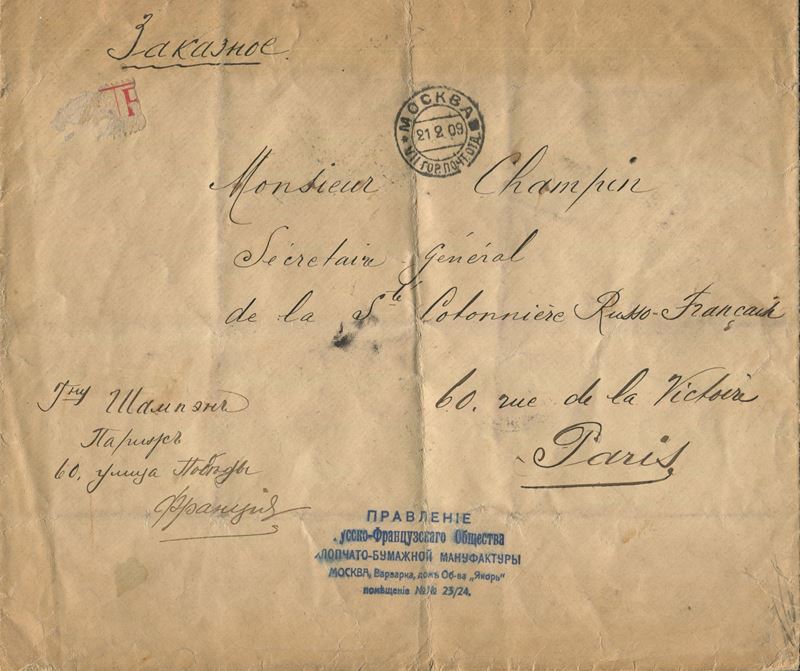 Заказное
R
МОСКВА
21 2 09
VII ГОР. ПОЧТ. ОТД.
Monsieur Champin
Sécretaire général
de la Sté Cotonnière Russo-Française
60, rue de la Victoire
Paris
Гну Шампэнъ
Парижъ
60, улица Победы
Франція
ПРАВЛЕНІЕ
усско-Французскаго Общества
ЛОПЧАТО-БУМАЖНОЙ МАНУФАКТУРЫ
МОСКВА, Варварка, домъ Об-ва „Якорь"
помѣщеніе №№ 23/24.